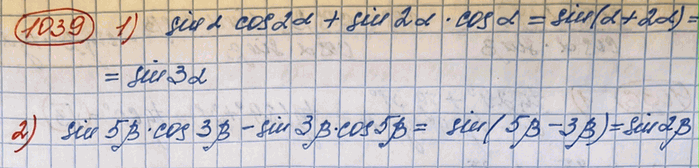 1039 1) sin α cos 2α + sin 2α · cos α = sin(α + 2α) =
= sin 3α
2) sin 5β · cos 3β - sin 3β · cos 5β = sin(5β - 3β) = sin 2β